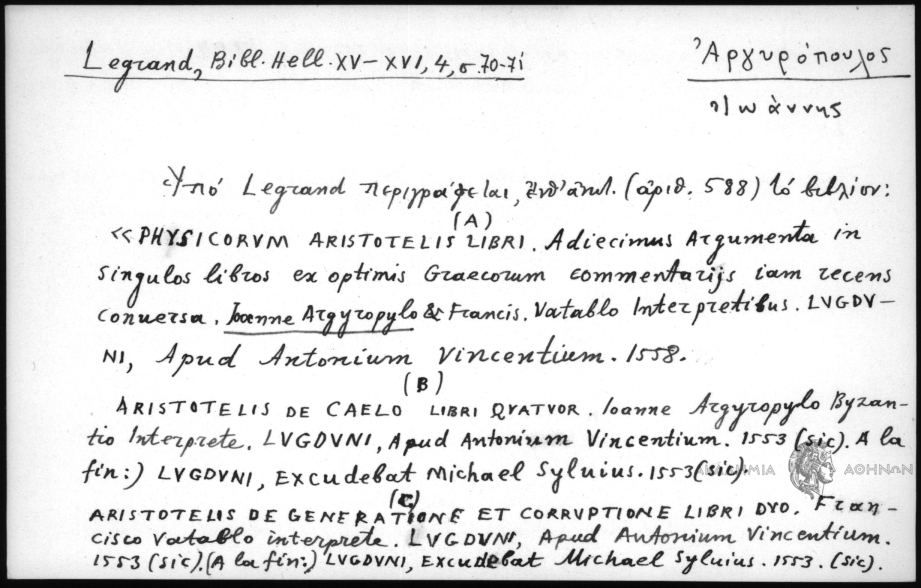 Legrand, Bibl. Hell. XV-XVI, 4, σ. 70-71
Ἀργυρόπουλος
Ἰωάννης
Ὑπό Legrand περιγράφεται, (ἀριθ. 588) τό βιβλίον:
(A)
<<PHYSICORVM ARISTOTELIS LIBRI. Adiecimus Argumenta in
singulos libros ex optimis Graecorum commentarijs iam recens
conuersa. Ioanne Argyropylo & Francis. Vatablo Interpretibus. LVGDV-
NI, Apud Antonium Vincentium. 1558.
(B)
ARISTOTELIS DE CAELO LIBRI QVATVOR. Ioanne Argyropylo Byzan-
tio Interprete. LVGDVNI, Apud Antonium Vincentium. 1553 (sic). A la
fin:) LVGDVNI, Excudebat Michael Syluius. 1553 (sic).
ΑΚΑΔΗΜΙΑ ΑΘΗΝΩΝ
(C)
ARISTOTELIS DE GENERATIONE ET CORRVPTIONE LIBRI DVO. Fran-
cisco Vatablo interprete. LVGDVNI, Apud Antonium Vincentium.
1553 (sic). (A la fin:) LVGDVNI, Excudebat Michael Syluius. 1553. (sic).